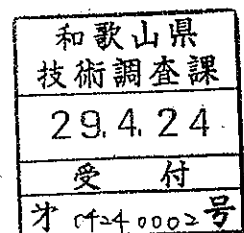 和歌山県
技術調査課
29.4.24
受 付
才 04240002号